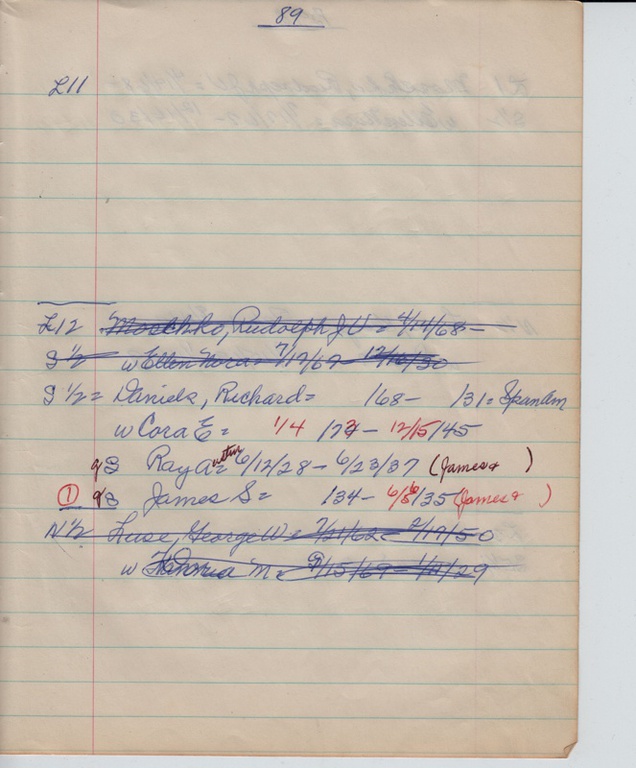 89
L11
L12 Rudolph J U = 4/14/68-
S 1/2 w Ellen Nora = 7/17/67 12/16/30
S 1/2 = Daniels, Richard= /68- /31= SpanAm
w Cora E= 1/4 /73- 12/15/45
gS Ray A= 6/12/28- 6/23/37 (James+ )
① gS James S= /34- /35 (James+ )
N 1/2 Luse, George W= 7/21/62= 2/19/50
w M= 9/15/69- /29